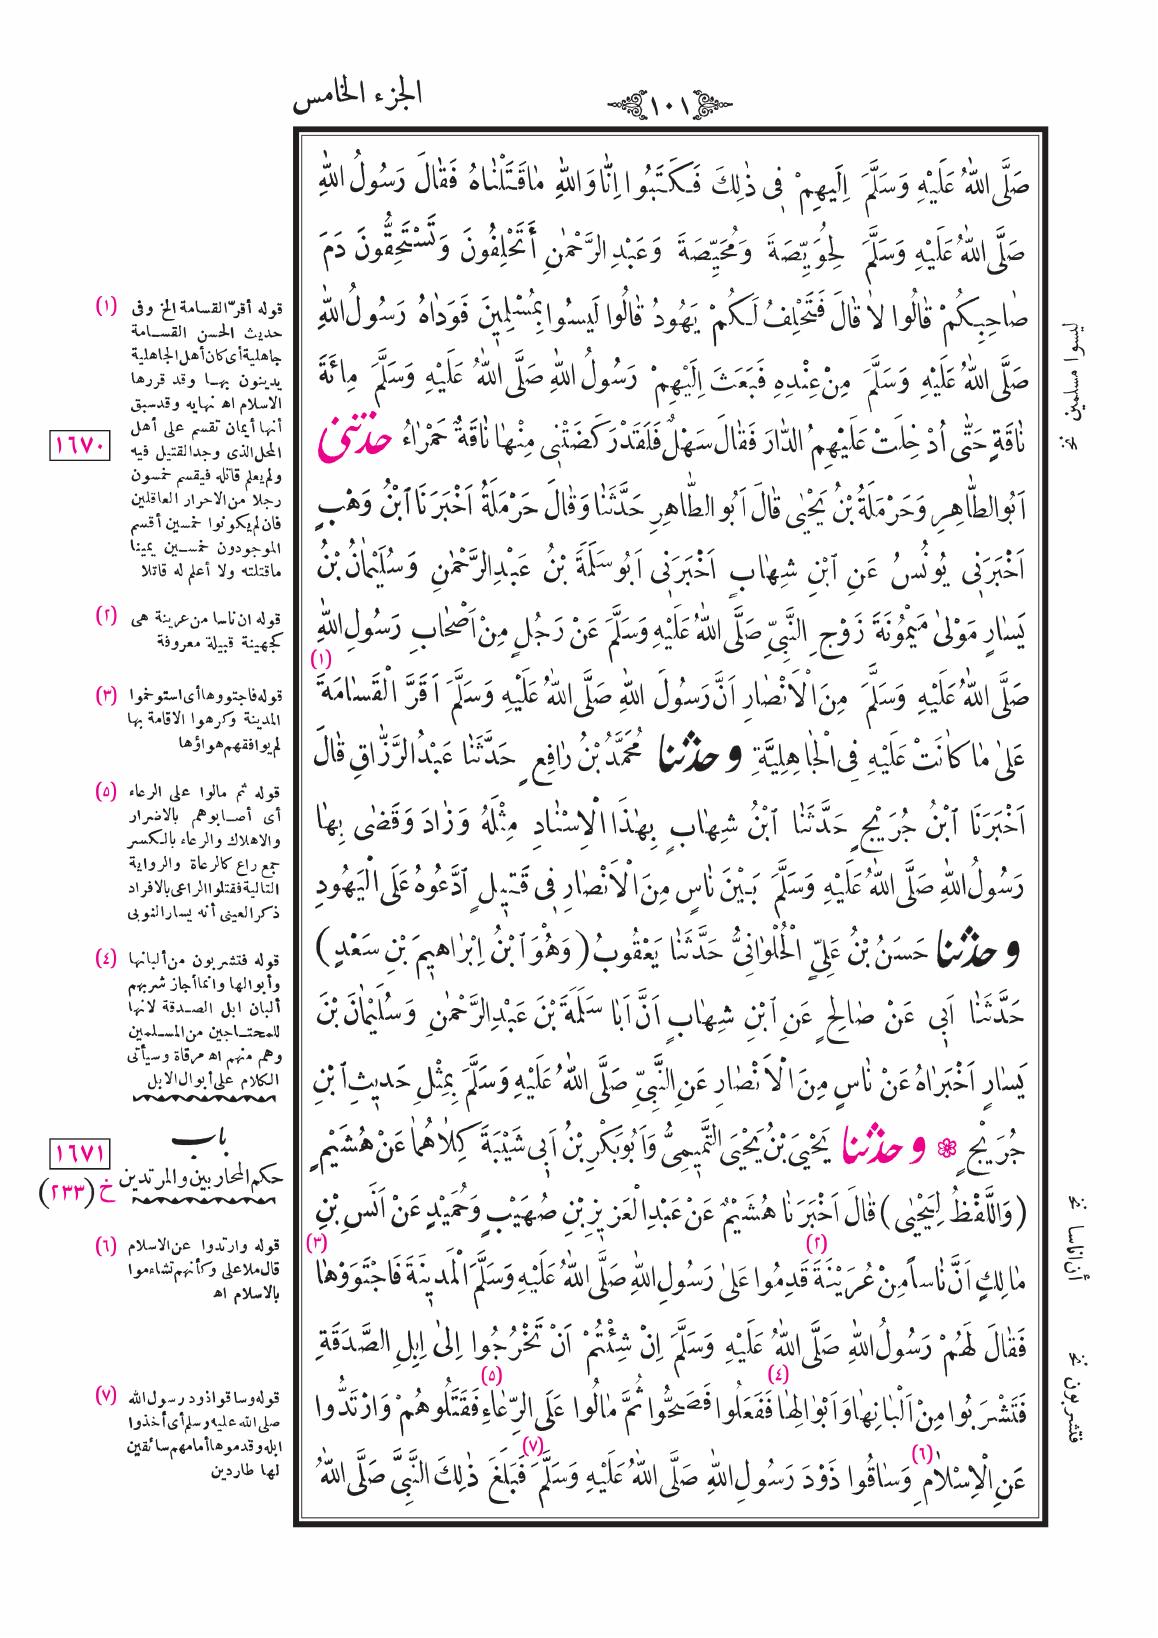 الجزء الخامس
١٠١
صَلَّى اللهُ عَلَيْهِ وَسَلَّمَ اِلَيهِمْ فِى ذٰلِكَ فَكَتَبُوا اِنَّا وَاللهِ مٰاقَتَلْنٰاهُ فَقٰالَ رَسُولُ اللهِ
صَلَّى اللهُ عَلَيْهِ وَسَلَّمَ لِحُوَيِّصَةَ وَمُحَيِّصَةَ وَعَبْدِ الرَّحْمٰنِ أَتَحْلِفُونَ وَتَسْتَحِقُّونَ دَمَ
صٰاحِبِكُمْ قٰالُوا لاٰ قٰالَ فَتَحْلِفُ لَكُمْ يَهُودُ قٰالُوا لَيسُوا بِمُسْلِمِينَ فَوَدٰاهُ رَسُولُ اللهِ
صَلَّى اللهُ عَلَيْهِ وَسَلَّمَ مِنْ عِنْدِهِ فَبَعَثَ اِلَيْهِمْ رَسُولُ اللهِ صَلَّى اللهُ عَلَيْهِ وَسَلَّمَ مِائَةَ
نٰاقَةٍ حَتّٰى اُدْخِلَتْ عَلَيْهِمُ الدّٰارَ فَقٰالَ سَهْلٌ فَلَقَدْ رَكَضَتْنِى مِنْهٰا نٰاقَةٌ حَمْرٰاءُ حَدَّثَنِى
اَبُو الطّٰاهِرِ وَحَرْمَلَةُ بْنُ يَحْيٰى قٰالَ اَبُو الطّٰاهِرِ حَدَّثَنٰا وَقٰالَ حَرْمَلَةُ اَخْبَرَنَا ابْنُ وَهْبٍ
اَخْبَرَنِى يُونُسُ عَنِ ابْنِ شِهٰابٍ اَخْبَرَنِى اَبُو سَلَمَةَ بْنُ عَبْدِ الرَّحْمٰنِ وَسُلَيْمٰانُ بْنُ
يَسٰارٍ مَوْلىٰ مَيْمُونَةَ زَوْجِ النَّبِيِّ صَلَّى اللهُ عَلَيْهِ وَسَلَّمَ عَنْ رَجُلٍ مِنْ اَصْحٰابِ رَسُولِ اللهِ
صَلَّى اللهُ عَلَيْهِ وَسَلَّمَ مِنَ الْاَنْصٰارِ اَنَّ رَسُولَ اللهِ صَلَّى اللهُ عَلَيْهِ وَسَلَّمَ اَقَرَّ الْقَسٰامَةَ (١)
عَلىٰ مٰا كٰانَتْ عَلَيْهِ فِى الْجٰاهِلِيَّةِ وحدثنا مُحَمَّدُ بْنُ رٰافِعٍ حَدَّثَنٰا عَبْدُ الرَّزّٰاقِ قٰالَ
اَخْبَرَنَا ابْنُ جُرَيْجٍ حَدَّثَنٰا ابْنُ شِهٰابٍ بِهٰذَا الْاِسْنٰادِ مِثْلَهُ وَزٰادَ وَقَضٰى بِهٰا
رَسُولُ اللهِ صَلَّى اللهُ عَلَيْهِ وَسَلَّمَ بَيْنَ نٰاسٍ مِنَ الْاَنْصٰارِ فِى قَتِيلٍ ادَّعَوْهُ عَلَى الْيَهُودِ
وحدثنا حَسَنُ بْنُ عَلِيٍّ الْحُلْوٰانِىُّ حَدَّثَنٰا يَعْقُوبُ (وَهُوَ ابْنُ اِبْرٰاهِيمَ بْنِ سَعْدٍ)
حَدَّثَنٰا اَبِى عَنْ صٰالِحٍ عَنِ ابْنِ شِهٰابٍ اَنَّ اَبٰا سَلَمَةَ بْنَ عَبْدِ الرَّحْمٰنِ وَسُلَيْمٰانَ بْنَ
يَسٰارٍ اَخْبَرٰاهُ عَنْ نٰاسٍ مِنَ الْاَنْصٰارِ عَنِ النَّبِيِّ صَلَّى اللهُ عَلَيْهِ وَسَلَّمَ بِمِثْلِ حَدِيثِ ابْنِ
جُرَيْجٍ ❁ وحدثنا يَحْيَى بْنُ يَحْيَى التَّمِيمِىُّ وَاَبُو بَكْرِ بْنُ اَبِى شَيْبَةَ كِلاٰهُمٰا عَنْ هُشَيْمٍ
(وَاللَّفْظُ لِيَحْيٰى) قٰالَ اَخْبَرَنٰا هُشَيْمٌ عَنْ عَبْدِ الْعَزِيزِ بْنِ صُهَيْبٍ وَحُمَيْدٍ عَنْ اَنَسِ بْنِ
مٰالِكٍ اَنَّ نٰاساً مِنْ عُرَيْنَةَ (٢) قَدِمُوا عَلىٰ رَسُولِ اللهِ صَلَّى اللهُ عَلَيْهِ وَسَلَّمَ الْمَدِينَةَ فَاجْتَوَوْهٰا (٣)
فَقٰالَ لَهُمْ رَسُولُ اللهِ صَلَّى اللهُ عَلَيْهِ وَسَلَّمَ اِنْ شِئْتُمْ اَنْ تَخْرُجُوا اِلىٰ اِبِلِ الصَّدَقَةِ
فَتَشْرَبُوا مِنْ اَلْبَانِهٰا وَاَبْوٰالِهٰا (٤) فَفَعَلُوا فَصَحُّوا ثُمَّ مٰالُوا (٥) عَلَى الرِّعٰاءِ فَقَتَلُوهُمْ وَارْتَدُّوا
عَنِ الْاِسْلاٰمِ (٦) وَسٰاقُوا ذَوْدَ رَسُولِ اللهِ صَلَّى اللهُ عَلَيْهِ وَسَلَّمَ (٧) فَبَلَغَ ذٰلِكَ النَّبِىَّ صَلَّى اللهُ
ليسوا مسلمين نخ
أن أناسا نخ
فتشربون نخ
(١) قوله أقرّ القسامة الخ وفى
حديث الحسن القسامة
جاهلية أى كان أهل الجاهلية
يدينون بها وقد قررها
الاسلام اه نهايه وقد سبق
أنها أيمان تقسم على أهل
المحل الذى وجد القتيل فيه
ولم يعلم قاتله فيقسم خمسون
رجلا من الاحرار العاقلين
فان لم يكونوا خمسين أقسم
الموجودون خمسين يمينا
ماقتلته ولا أعلم له قاتلا
١٦٧٠
(٢) قوله ان ناسا من عرينة هى
كجهينة قبيلة معروفة
(٣) قوله فاجتووها أى استوخموا
المدينة وكرهوا الاقامة بها
لم يوافقهم هواؤها
(٥) قوله ثم مالوا على الرعاء
أى أصابوهم بالاضرار
والاهلاك والرعاء بالكسر
جمع راع كالرعاة والرواية
التالية فقتلوا الراعى بالافراد
ذكر العينى أنه يسار النوبى
(٤) قوله فتشربون من ألبانها
وأبوالها وانما أجاز شربهم
ألبان ابل الصدقة لانها
للمحتاجين من المسلمين
وهم منهم اه مرقاة وسيأتى
الكلام على أبوال الابل
باب
١٦٧١
حكم المحاربين والمرتدين
خ (٢٣٣)
(٦) قوله وارتدوا عن الاسلام
قال ملا على وكأنهم تشاءموا
بالاسلام اه
(٧) قوله وساقوا ذود رسول الله
صلى الله عليه وسلم أى أخذوا
ابله وقدموها أمامهم سائقين
لها طاردين